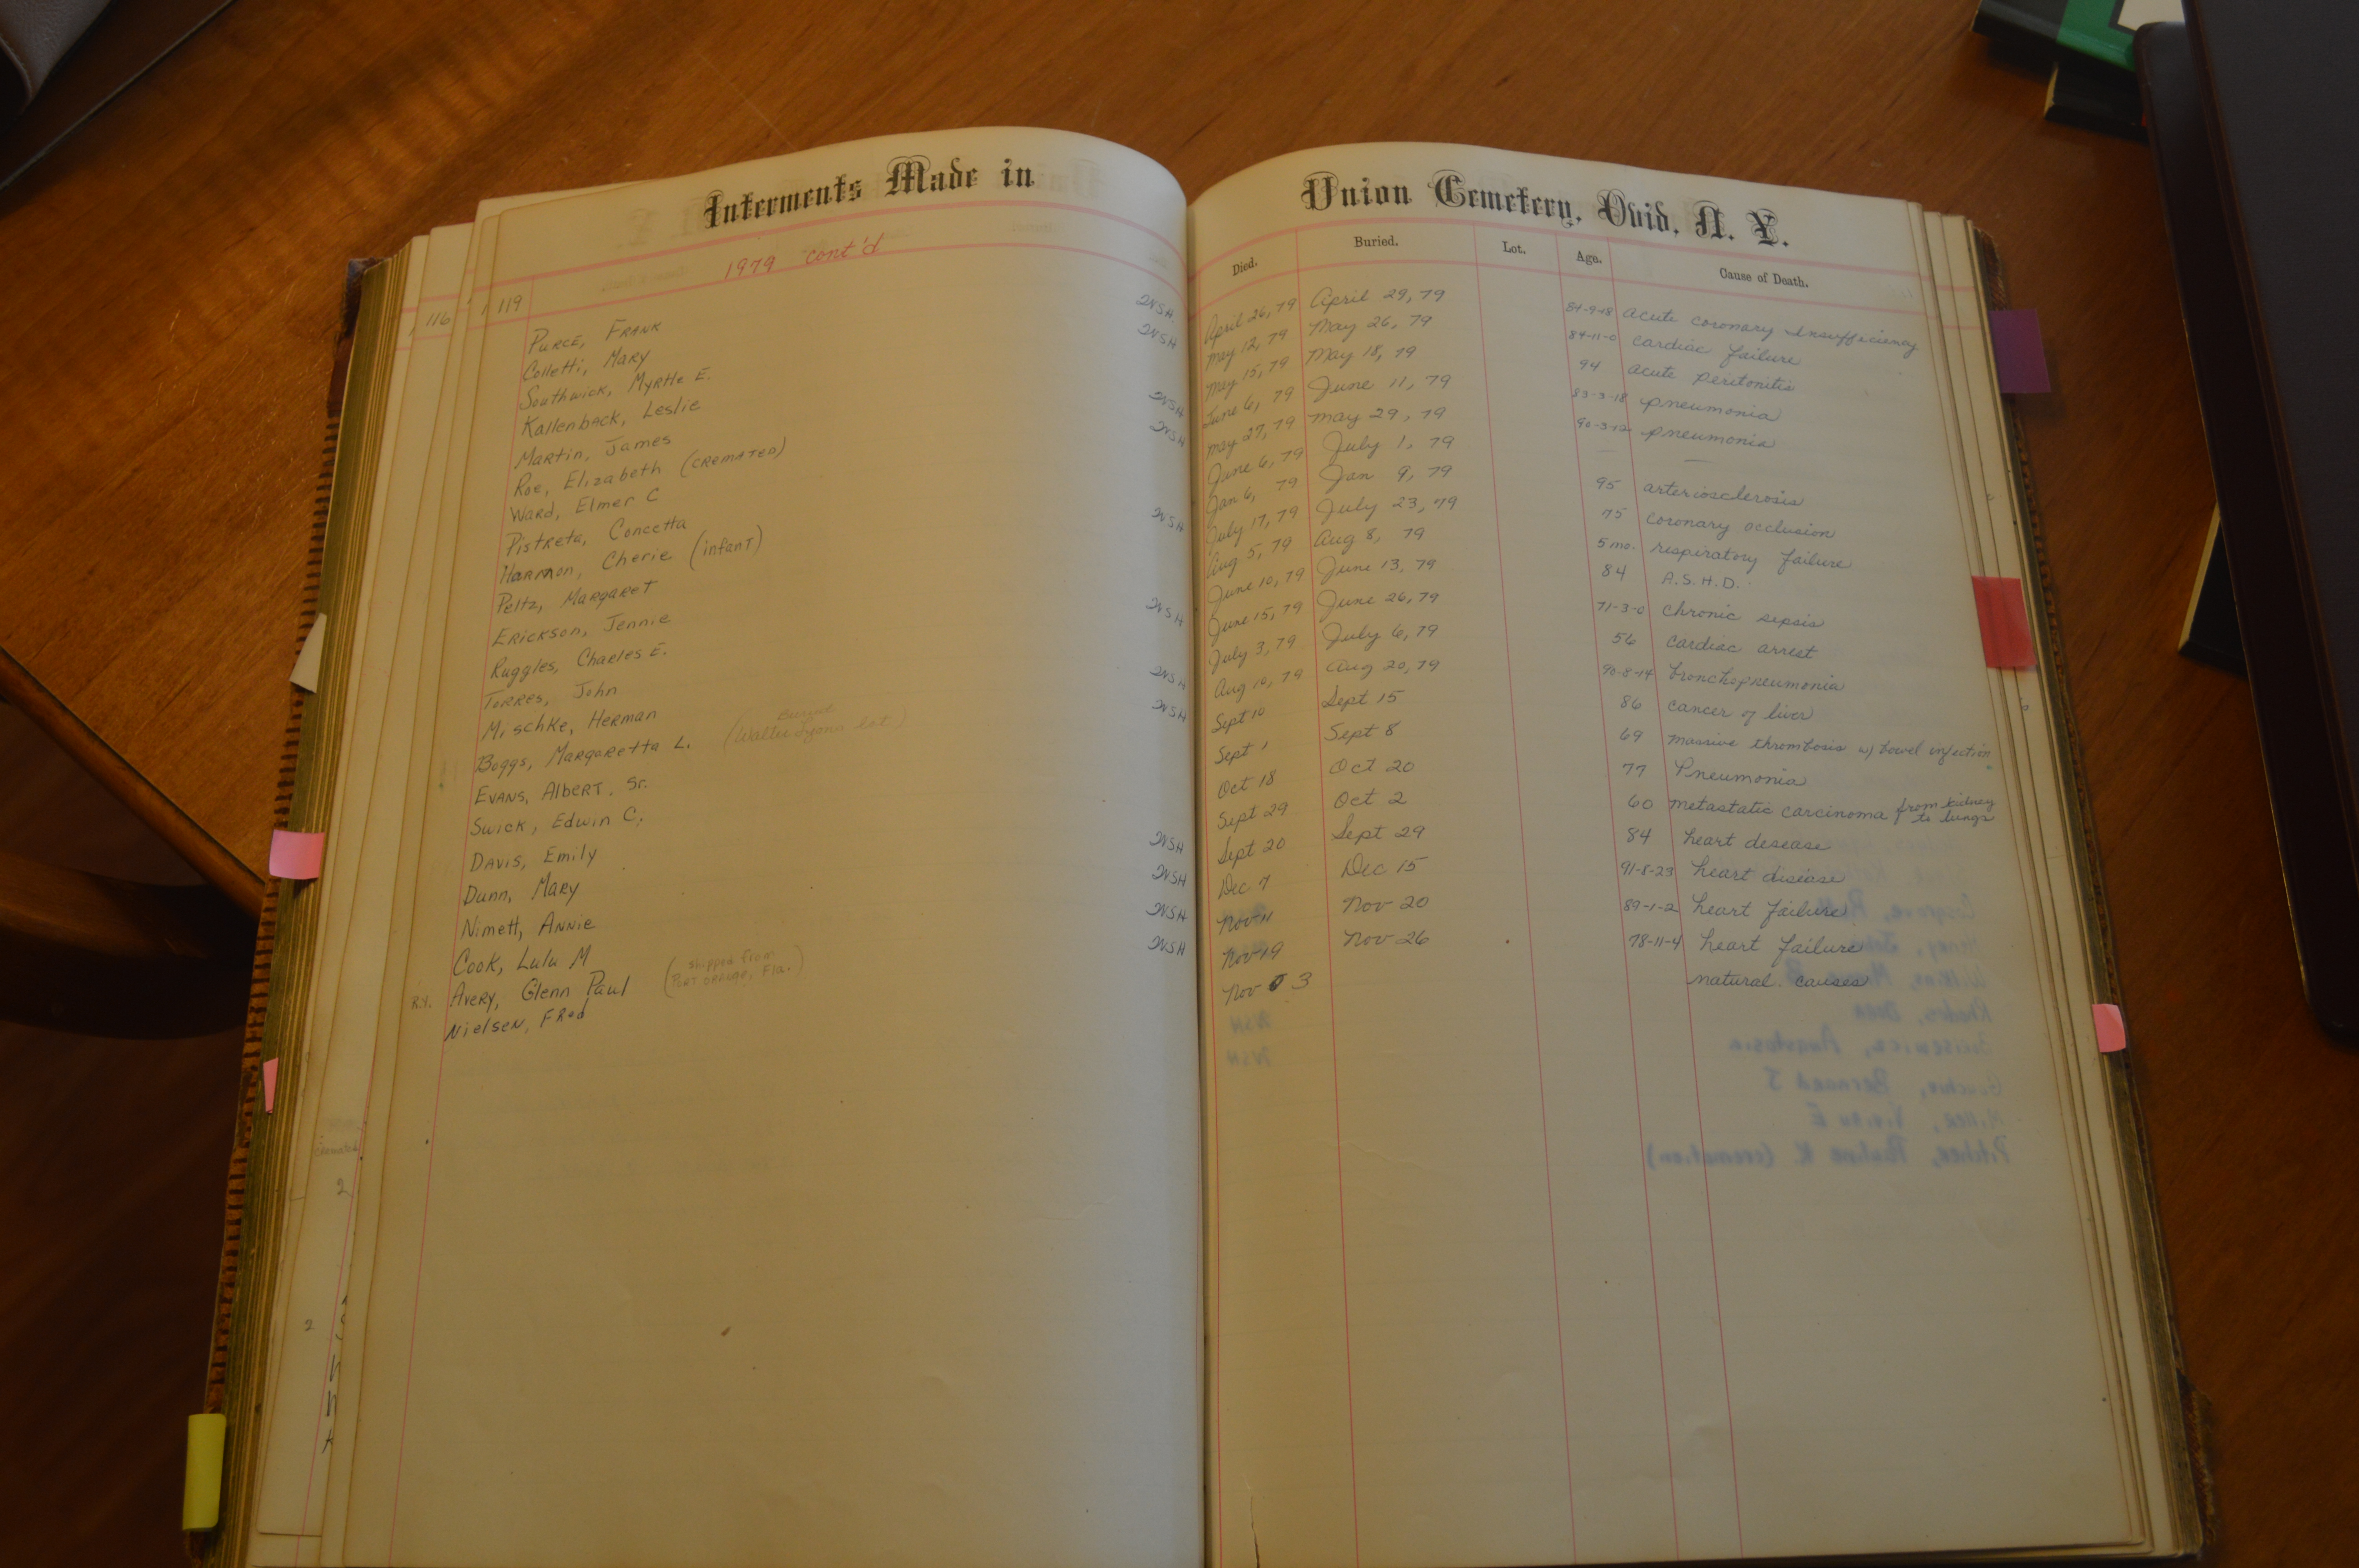 Interments Made in
1979 cont'd
116
119
Purce, Frank WSH
Colletti, Mary WSH
Southwick, Myrtle E.
Kallenback, Leslie WSH
Martin, James WSH
Roe, Elizabeth (cremated)
Ward, Elmer C
Pistreta, Concetta WSH
Harmon, Cherie (infant)
Peltz, Margaret
Erickson, Jennie WSH
Ruggles, Charles E.
Torres, John WSH
Mischke, Herman WSH
Boggs, Margaretta L. (Buried Walter Lyons lot)
Evans, Albert, Sr.
Swick, Edwin C.
Davis, Emily WSH
Dunn, Mary WSH
Nimett, Annie WSH
Cook, Lulu M WSH
R.Y. Avery, Glenn Paul (shipped from Port Orange, Fla.)
Nielsen, Fred
cremated
2
2
Union Cemetery, Ovid, N. Y.
Died. Buried. Lot. Age. Cause of Death.
April 26, 79 April 29, 79 84-9-18 acute coronary insufficiency
May 12, 79 May 26, 79 84-11-0 cardiac failure
May 15, 79 May 18, 79 94 acute peritonitis
June 6, 79 June 11, 79 83-3-18 pneumonia
May 27, 79 May 29, 79 90-3-12 pneumonia
June 6, 79 July 1, 79 — —
Jan 6, 79 Jan 9, 79 95 arteriosclerosis
July 17, 79 July 23, 79 75 coronary occlusion
Aug 5, 79 Aug 8, 79 5 mo. respiratory failure
June 10, 79 June 13, 79 84 A.S.H.D.
June 15, 79 June 26, 79 71-3-0 chronic sepsis
July 3, 79 July 6, 79 56 cardiac arrest
Aug 10, 79 Aug 20, 79 90-8-14 bronchopneumonia
Sept 10 Sept 15 86 cancer of liver
Sept 1 Sept 8 69 massive thrombosis w/ bowel infection
Oct 18 Oct 20 77 Pneumonia
Sept 29 Oct 2 60 metastatic carcinoma from kidney to lungs
Sept 20 Sept 29 84 heart desease
Dec 7 Dec 15 91-8-23 heart disease
Nov 11 Nov 20 89-1-2 heart failure
Nov 19 Nov 26 78-11-4 heart failure
Nov 3 natural causes